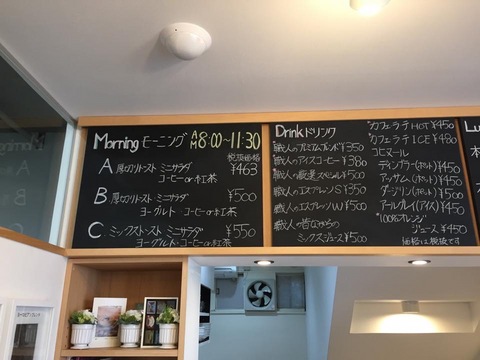 Morning モーニング AM 8:00~11:30
税抜価格
A 厚切りトースト ミニサラダ ¥463
コーヒーor紅茶
B 厚切りトースト ミニサラダ ¥500
ヨーグルト・コーヒーor紅茶
C ミックストースト ミニサラダ ¥550
ヨーグルト・コーヒーor紅茶
Drink ドリンク
職人のプレミアムブレンド ¥350
職人のアイスコーヒー ¥380
職人の厳選スペシャル ¥500
職人のエスプレッソS ¥350
職人のエスプレッソW ¥500
職人の昔ながらの
ミックスジュース ¥500
カフェラテ HOT ¥450
カフェラテ ICE ¥480
ディンブラー(ホット) ¥450
アッサム(ホット) ¥450
ダージリン(ホット) ¥500
アールグレイ(アイス) ¥450
"100%オレンジ"
ジュース ¥450
価格は税抜です
Lu